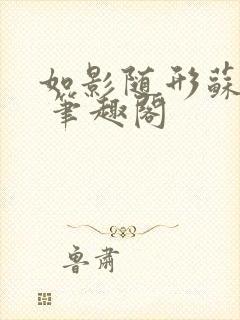 如影随形蘇
笔趣阁
鲁肃